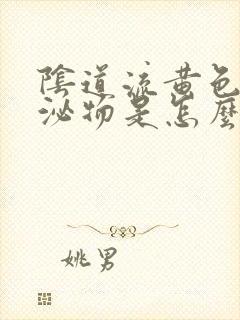 陰道流黃色
泌物是怎麼
姚男